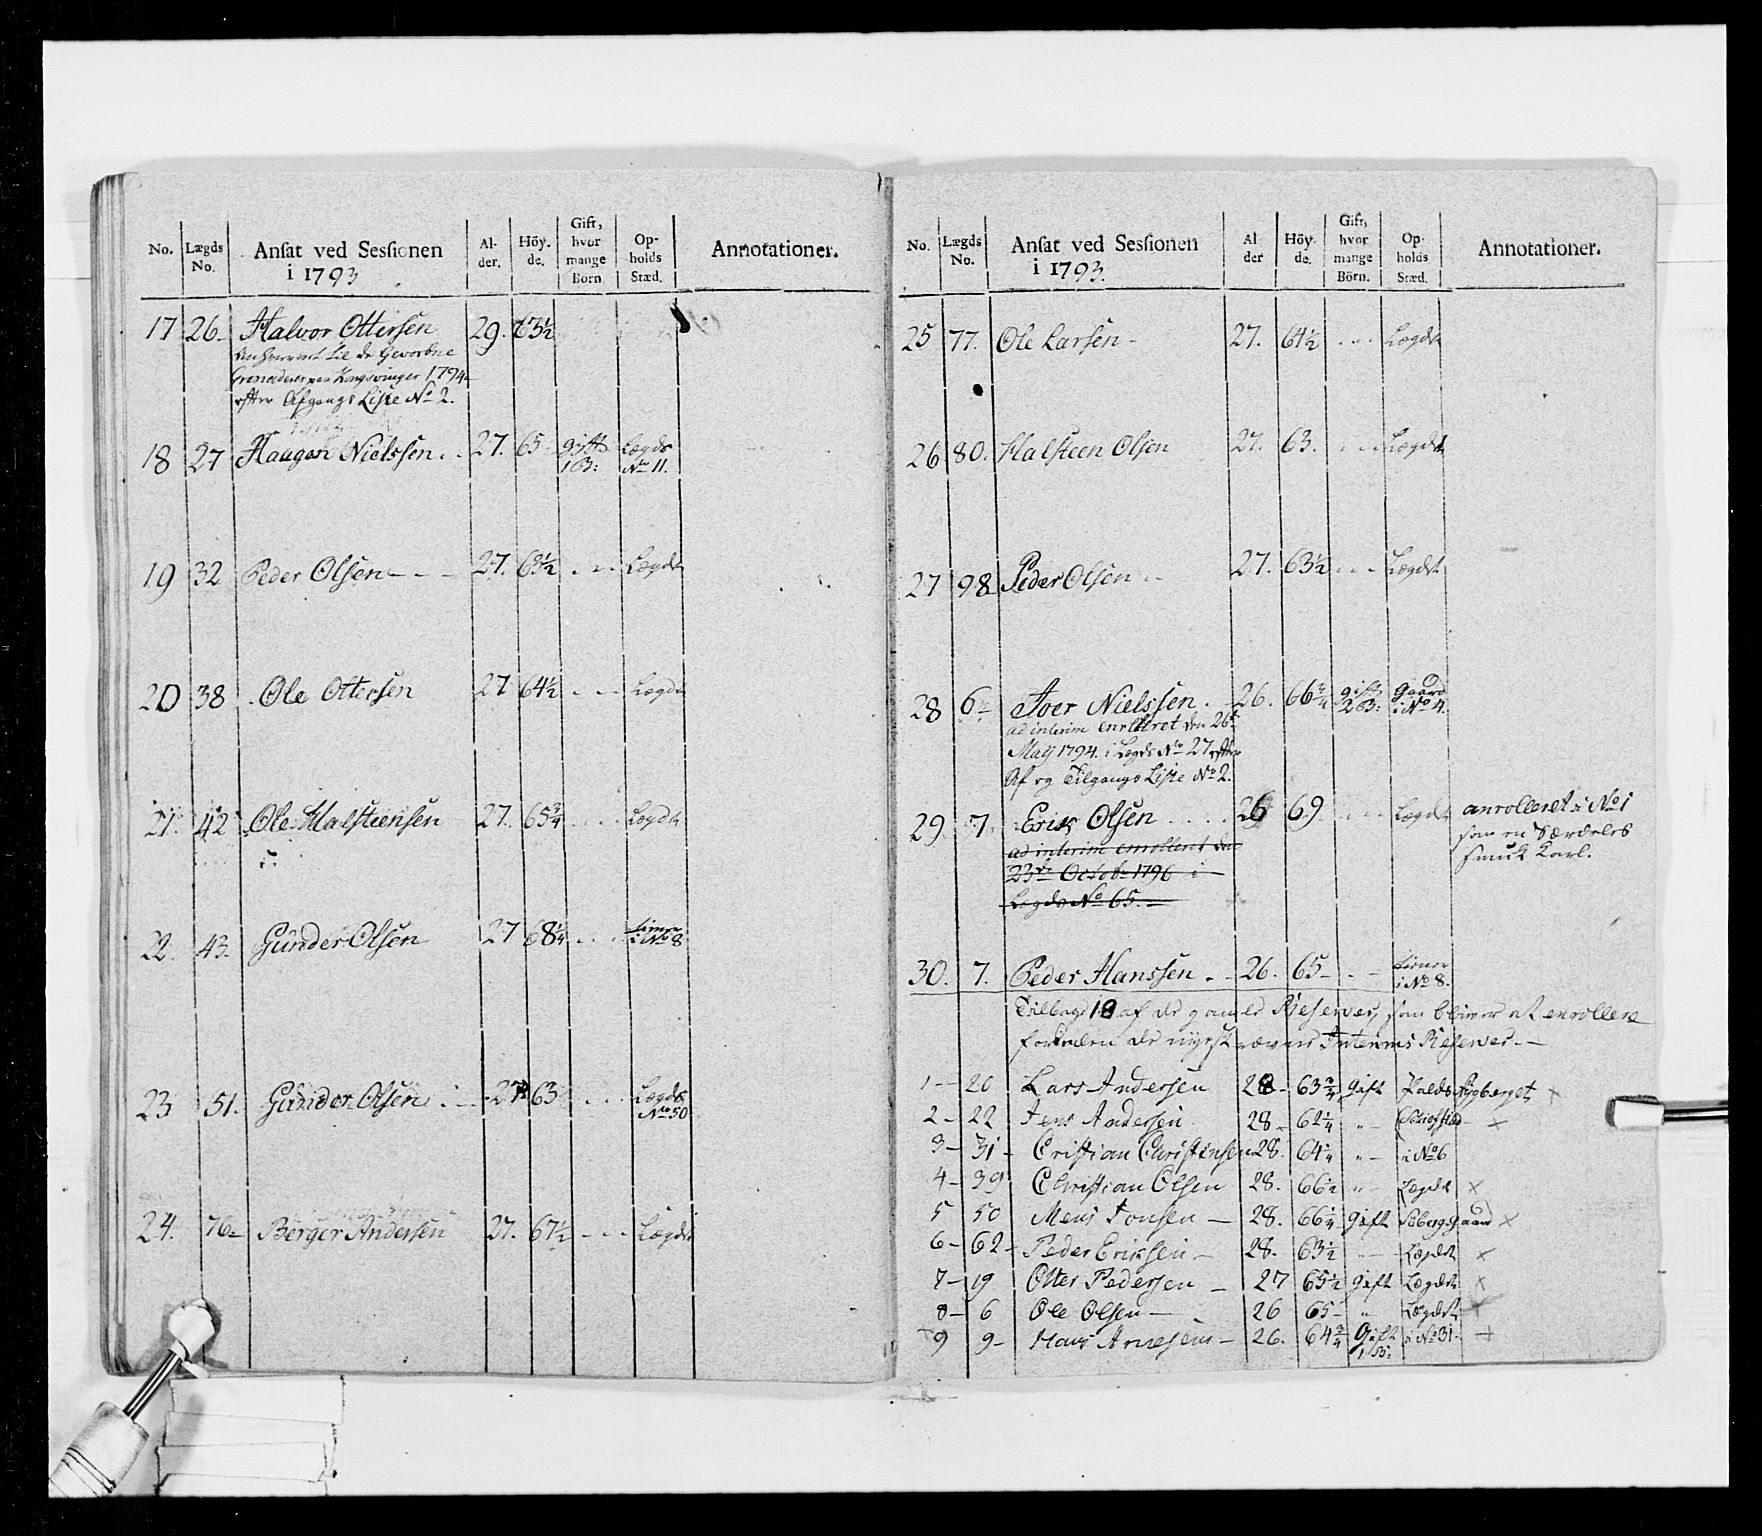 No. Lægds No. Ansat ved Sessionen i 1793 Al- der. Höy- de. Gift, hvor mange Börn Op- holds Stæd. Annotationer.
17 26 Halvor Ottersen 29. 63½
til de Gevorbne
Kongsvinger 1794
efter Afgangs Liste No 2.
18 27 Haagen Nielssen 27. 65 gift 1 B: Lægds No 11.
19 32 Peder Olsen 27. 63½ Lægdet
20 38 Ole Ottersen 27 64½ Lægdet
21. 42 Ole Halsteensen 27. 65¾ Lægdet
22. 43. Gunder Olsen 27 68¼ tiener i No 8
23 51. Gunder Olsen 27 63 Lægds No 50
24. 76 Berger Andersen 27. 67½ Lægdet
No. Lægds No. Ansat ved Sessionen i 1793. Al- der Höy- de. Gift, hvor mange Börn. Op- holds Stæd. Annotationer.
25 77. Ole Larsen 27. 64½ Lægdet
26 80. Halsteen Olsen 27. 63. Lægdet
27 98 Peder Olsen 27. 63½ Lægdet
28 6 Iver Nielssen. 26. 66¾ gift 2 B: Gaard i No 4.
ad interim enrolleret den 26de
Maij 1794. i Lægds No 27 efter
Af og Tilgangs Liste No 2.
29 7. Erik Olsen 26 69 Lægdet anrolleret i No 1
som en Særdeles
smuk Karl.
ad interim enrolleret den
23de Octobr 1796 i
Lægds No 65.
30. 7. Peder Hanssen 26. 65 tiener i No 8.
Tilbage 18 af de gamle Reserver, som bliver at enrollere
forinden de nyeskrævne Interims Reserver.
1 20 Lars Andersen 28 63¾ gift
2 22 Jens Andersen 28 62¼ "
3 31 Cristian Christensen 28. 64¼ " i No 6
4 39 Christian Olsen 28. 66½ " Lægdet ×
5 50 Mens Jonsen 28. 66¼ gift ×
6 62 Peder Eriksen 28. 63½ Lægdet ×
7 19 Otter Pedersen 27 65½ gift Lægdet ×
8 6 Ole Olsen 26 65 " Lægdet ×
9 9 26. 64¾ Gift 1 B: i No 31